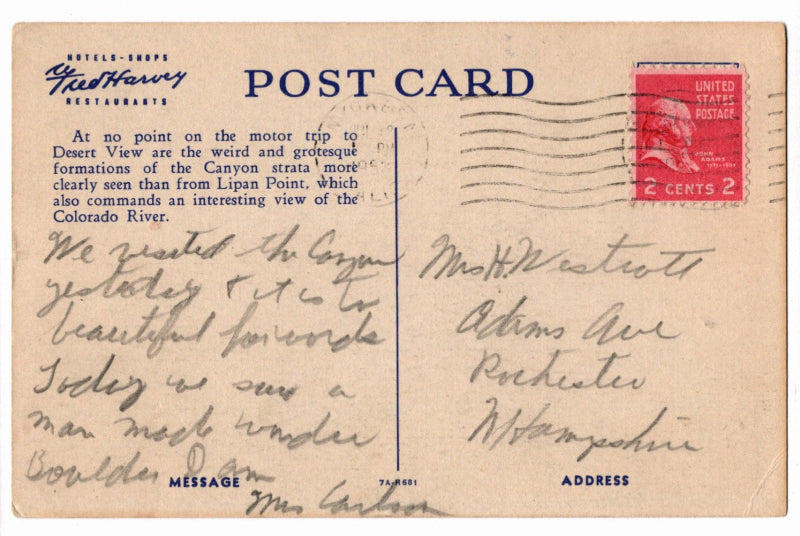 HOTELS-SHOPS
Fred Harvey
RESTAURANTS
POST CARD
At no point on the motor trip to
Desert View are the weird and grotesque
formations of the Canyon strata more
clearly seen than from Lipan Point, which
also commands an interesting view of the
Colorado River.
UNITED
STATES
POSTAGE
JOHN
ADAMS
2 CENTS 2
We visited the Canyon
yesterday & it is to
beautiful for words
Today we saw a
man made wonder
Boulder Dam
Mrs Carlson
Mrs H. Westcott
Adams Ave
Rochester
N Hampshire
MESSAGE
7A-H681
ADDRESS